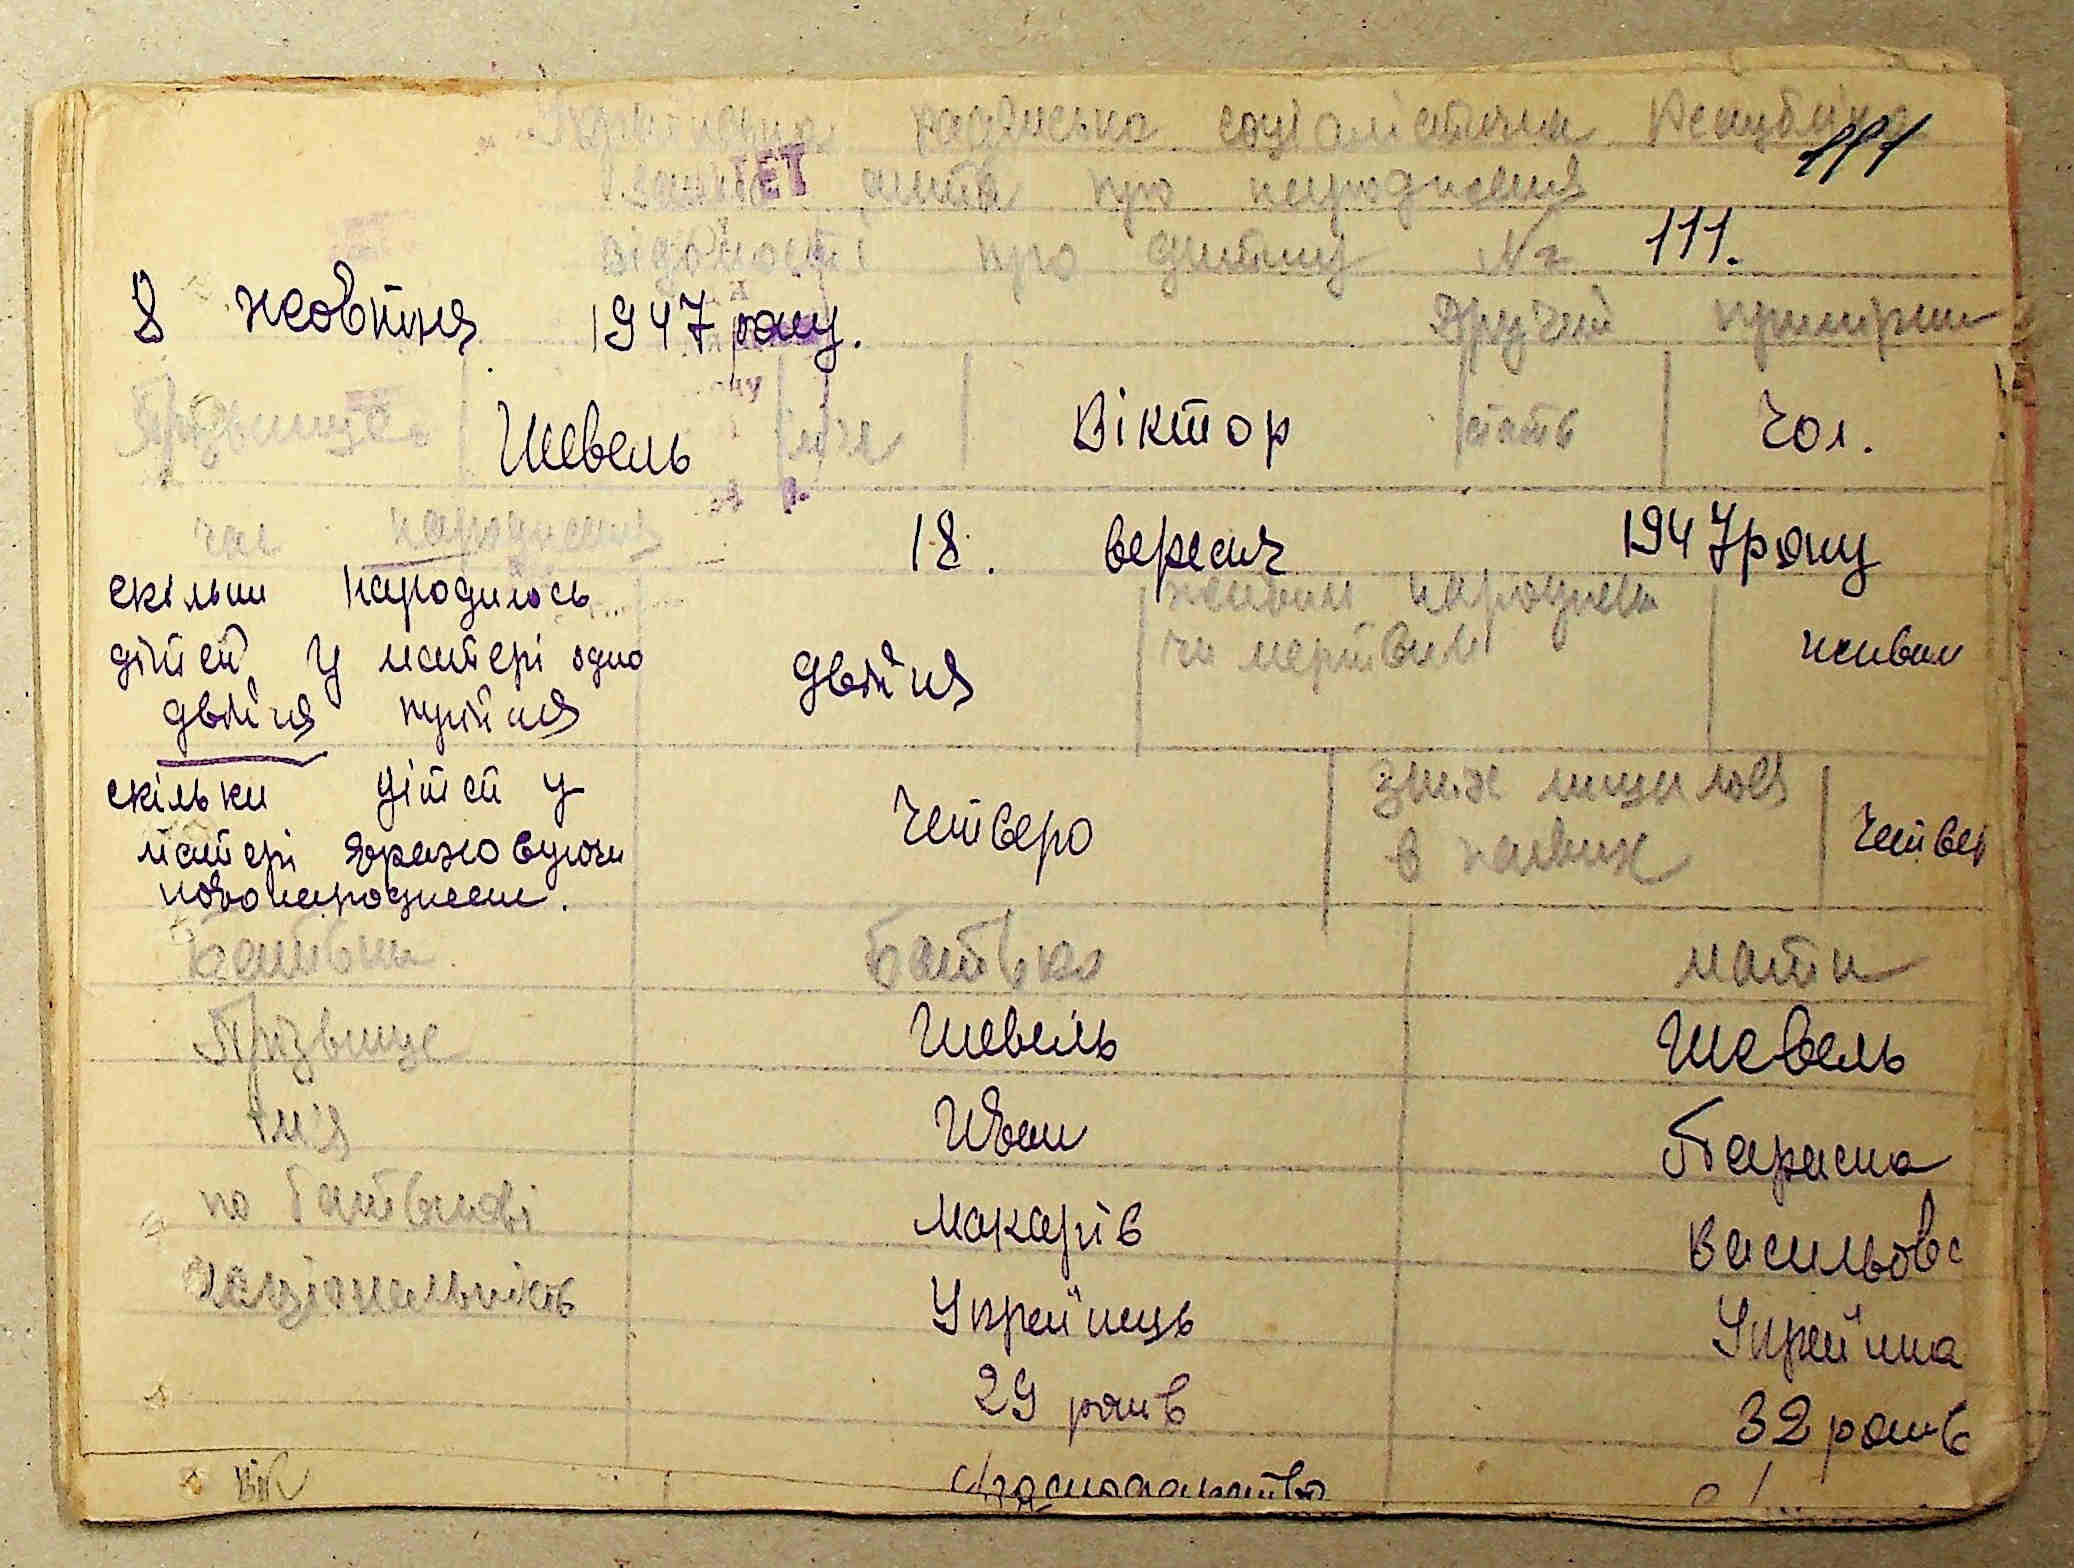 Українська радянська соціалістична Республіка
111
запис акта про народження
ЕТ
відомості про дитину № 111.
8 жовтня 1947 року.
Другий примірник
Прізвище Шевель ім'я Віктор стать Чол.
час народження 18. вересня 1947 року
скільки народилось дітей у матері одно двійня трійня
двійня
живим народився чи мертвим
живим
скільки дітей у матері враховуючи новонароджені.
Четверо
з них лишилося в живих
Четвер
Батьки Батько мати
Прізвище Шевель Шевель
Ім'я Иван Параска
по батькові Макарів Васильовс
національність Українець Українка
29 років 32 років
вік